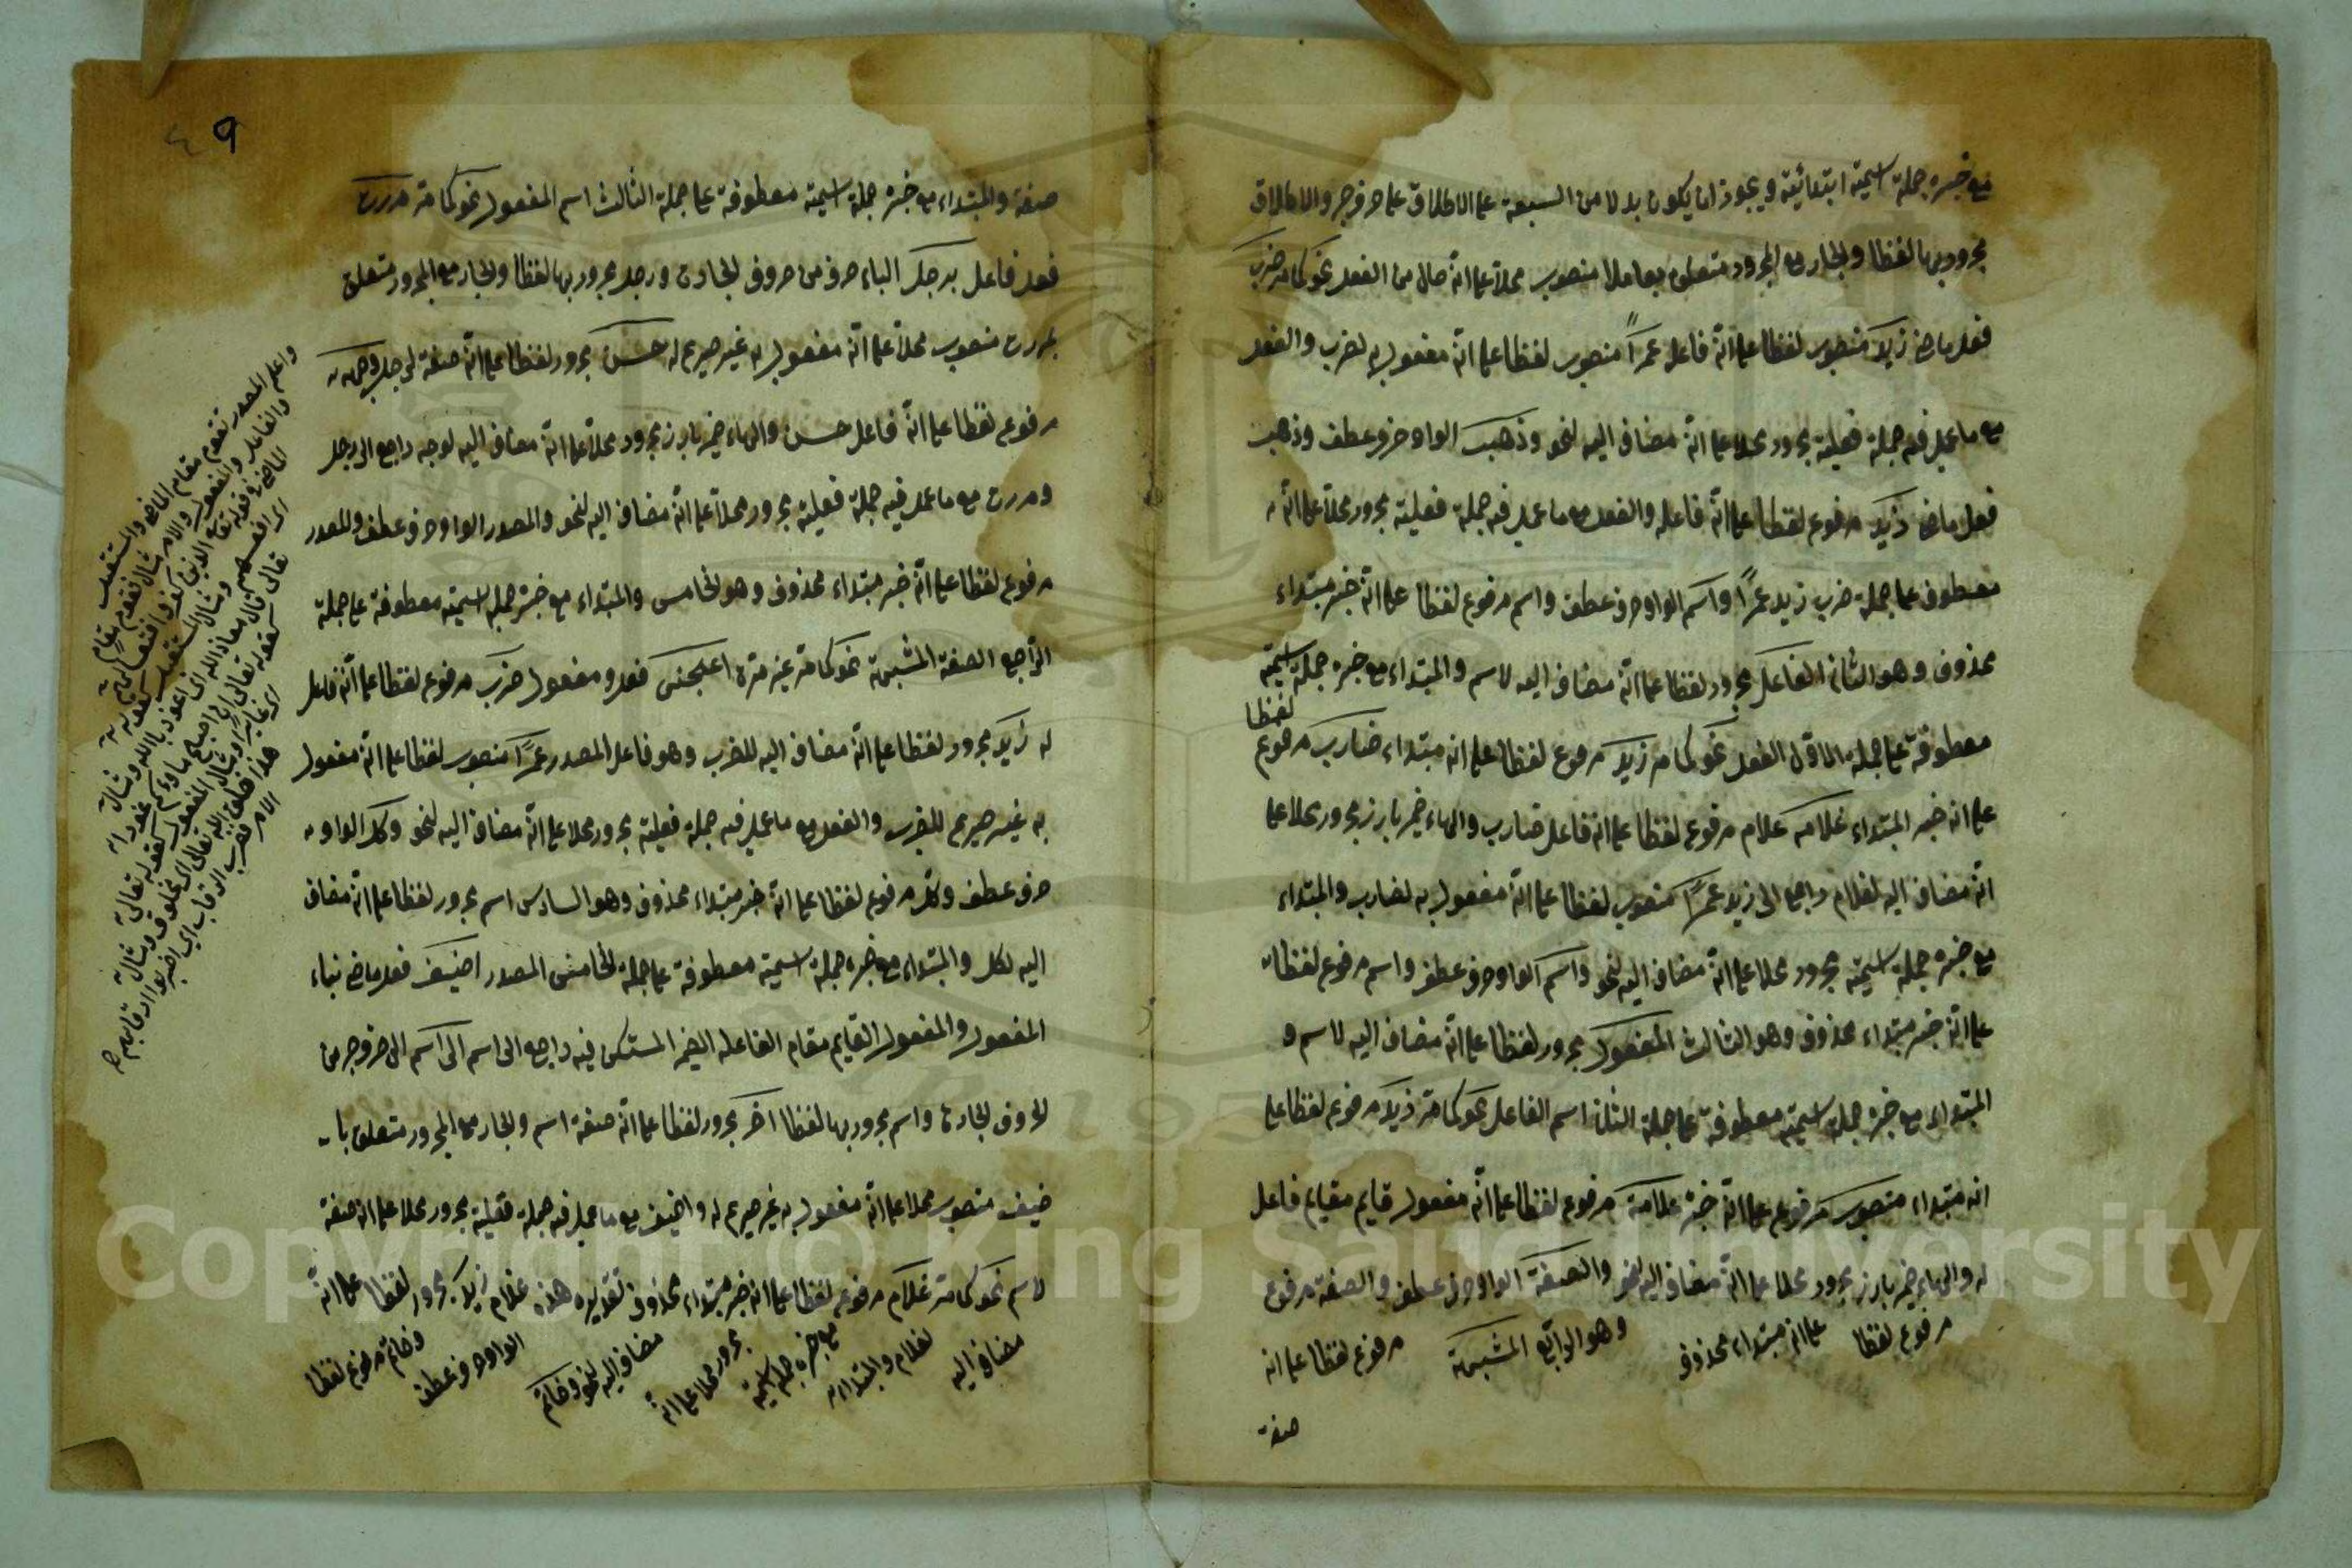 مع خبره جملة اسمية ابتدائية ويجوز ان يكون بدلا من السبعة على الاطلاق على حرف جر والاطلاق
مجرور بها لفظا والجار مع المجرور متعلق بعاملا منصوب محلا على انه حال من الفعل نحو كلمة ضرب
فعل ماض زيد منصوب لفظا على انه فاعله عمرًا منصوب لفظا على انه مفعول به لضرب والفعل
مع ما عمل فيه جملة فعلية مجرور محلا على انه مضاف اليه لنحو وذهب الواو حرف عطف وذهب
فعل ماض زيد مرفوع لفظا على انه فاعله والفعل مع ما عمل فيه جملة فعلية مجرور محلا على انه
معطوف على جملة ضرب زيد عمرًا واسم الواو حرف عطف واسم مرفوع لفظا على انه خبر مبتداء
محذوف وهو الثاني الفاعل مجرور لفظا على انه مضاف اليه لاسم والمبتداء مع خبره جملة اسمية
معطوفة على جملة الاول الفعل نحو كلمة زيد مرفوع لفظا على انه مبتداء ضارب مرفوع
لفظا
على انه خبر المبتداء غلامه غلام مرفوع لفظا على انه فاعل ضارب والهاء ضمير بارز مجرور محلا على
انه مضاف اليه لغلام راجع الى زيد عمرًا منصوب لفظا على انه مفعول به لضارب والمبتداء
مع خبره جملة اسمية مجرور محلا على انه مضاف اليه لنحو واسم الواو حرف عطف واسم مرفوع لفظا
على انه خبر مبتداء محذوف وهو الثالث المفعول مجرور لفظا على انه مضاف اليه لاسم و
المبتداء مع خبره جملة اسمية معطوفة على جملة الثاني اسم الفاعل نحو كلمة زيد مرفوع لفظا على
انه مبتداء منصوب مرفوع على انه خبره غلامه مرفوع لفظا على انه مفعول قايم مقام فاعل
له والهاء ضمير بارز مجرور محلا على انه مضاف اليه لنحو والصفة الواو حرف عطف والصفة مرفوع
مرفوع لفظا على انه مبتداء محذوف وهو الرابع المشبهة مرفوع لفظا على انه
صفة
٤٩
صفة والمبتداء مع خبره جملة اسمية معطوفة على جملة الثالث اسم المفعول نحو كلمة مررت
فعل فاعل برجل الباء حرف من حروف الجارة ورجل مجرور بها لفظا والجار مع المجرور متعلق
بمررت منصوب محلا على انه مفعول به غير صريح له حسن مجرور لفظا على انه صفة لرجل وجهه
مرفوع لفظا على انه فاعل حسن والهاء ضمير بارز مجرور محلا على انه مضاف اليه لوجه راجع الى رجل
ومررت مع ما عمل فيه جملة فعلية مجرور محلا على انه مضاف اليه لنحو والمصدر الواو حرف عطف والمصدر
مرفوع لفظا على انه خبر مبتداء محذوف وهو الخامس والمبتداء مع خبره جملة اسمية معطوفة على جملة
الرابع الصفة المشبهة نحو كلمة اعجبنى فعل ومفعول ضرب مرفوع لفظا على انه فاعل
له زيد مجرور لفظا على انه مضاف اليه للضرب وهو فاعل المصدر عمرًا منصوب لفظا على انه مفعول
به غير صريح للضرب والفعل مع ما عمل فيه جملة فعلية مجرور محلا على انه مضاف اليه لنحو وكل الواو
حرف عطف وكل مرفوع لفظا على انه خبر مبتداء محذوف وهو السادس اسم مجرور لفظا على انه مضاف
اليه لكل والمبتداء مع خبره جملة اسمية معطوفة على جملة الخامس المصدر اضيف فعل ماض بناء
المفعول والمفعول القايم مقام الفاعله الضمير المستكن فيه راجع الى اسم الى اسم الى حرف جر من
الحروف الجارة واسم مجرور بها لفظا اخر مجرور لفظا على انه صفة اسم والجار مع المجرور متعلق با
ضيف منصوب محلا على انه مفعول به غير صريح له واضيف مع ما عمل فيه جملة فعلية مجرور محلا على انه صفة
لاسم نحو كلمة غلام مرفوع لفظا على انه خبر مبتداء محذوف تقديره هذه غلام زيد مجرور لفظا على انه
مضاف اليه لغلام والمبتداء مع خبره جملة اسمية مجرور محلا على انه مضاف اليه لنحو وخاتم الواو حرف عطف وخاتم مرفوع لفظا
واعلم المصدر تقوم مقام الماضى والمستقبل
والفاعل والمفعول والامر مثال تقوم مقام